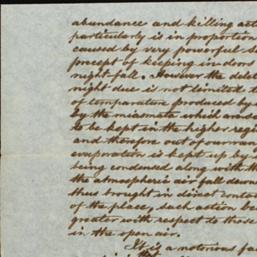 abundance and killing act
particularly is in proportion
caused by very powerful s
precept of keeping in doors
night-fall. However the dele
night due is not limited t
of temperature produced by
by the miasmata which are
to be kept in the higher regi
and therefore out of our ran
evaporation is kept up by
being condensed along with th
the atmospheric air fall down
thus brought in direct conta
of the place, such action be
greater with respect to those
in the open air.
It is a notorious fa
the